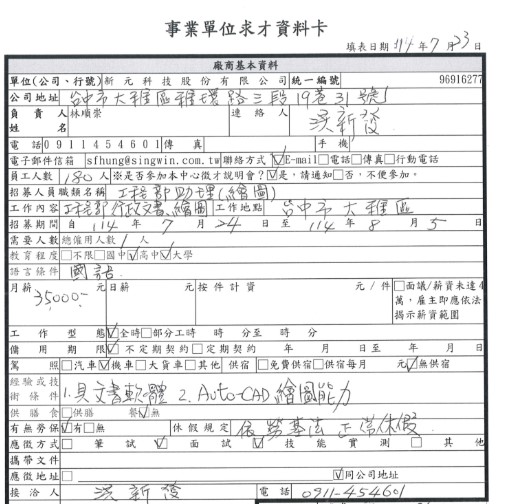 事業單位求才資料卡
填表日期 114 年 7 月 23 日
廠商基本資料
單位(公司、行號) 新元科技股份有限公司 統一編號 96916277
公司地址 台中市大雅區雅環路三段19巷31號
負責人姓名 林順崇 連絡人 洪新發
電話 0911454601 傳真 手機
電子郵件信箱 sfhung@singwin.com.tw 聯絡方式 ☑E-mail□電話□傳真□行動電話
員工人數 180 人 ※是否參加本中心徵才說明會?☑是,請通知□否,不便參加。
招募人員職類名稱 工務部助理(繪圖)
工作內容 工務部行政文書、繪圖 工作地點 台中市大雅區
招募期間 自 114 年 7 月 24 日 至 114 年 8 月 5 日
需要人數 總僱用人數 1 人
教育程度 □不限□國中☑高中☑大學
語言條件 國語
月薪 35000- 元 日薪 元 按件計資 元/件 □面議/薪資未達4萬,雇主即應依法揭示薪資範圍
工作型態 ☑全時□部分工時 時 分至 時 分
僱用期限 ☑不定期契約□定期契約 年 月 日至 年 月 日
駕照 □汽車☑機車□大貨車□其他 供宿 □免費供宿□供宿每月 元☑無供宿
經驗或技術條件 1.具文書軟體 2.Auto-CAD繪圖能力
供膳食 □供膳 餐☑無
有無勞保 ☑有□無 休假規定 依勞基法正常休假
應徵方式 □筆試 ☑面試 ☑技能實測 □其他
攜帶文件
應徵地址 □ ☑同公司地址
接洽人 洪新發 電話 0911-454601